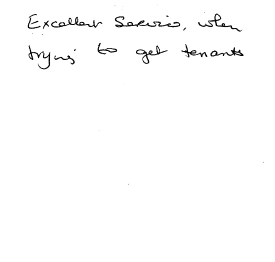 Excellent Service, when
trying to get tenants